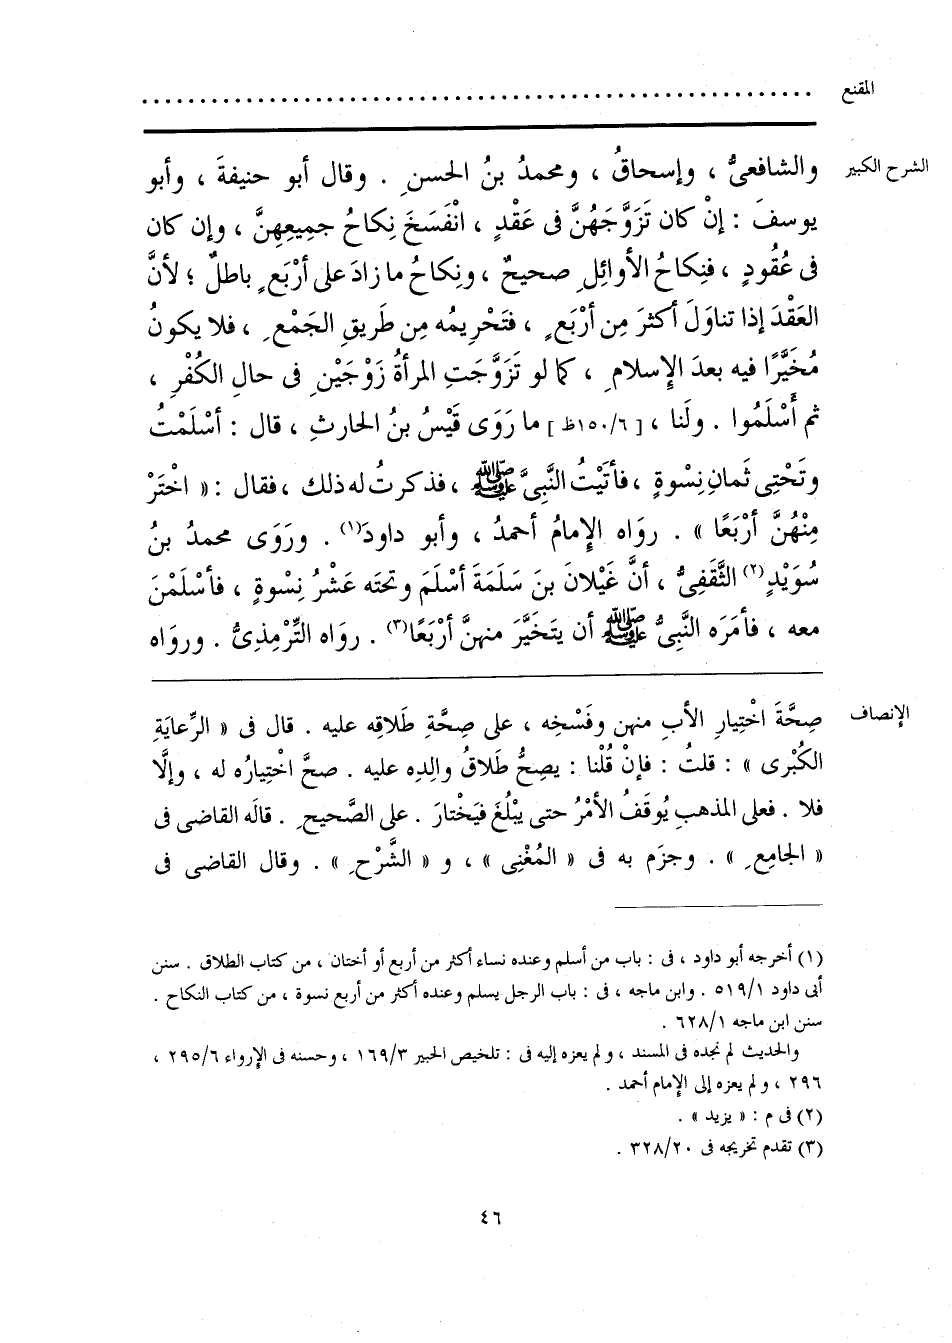 المقنع ..........................................................
الشرح الكبير
والشافعىُّ ، وإسحاقُ ، ومحمدُ بنُ الحسنِ . وقال أبو حنيفةَ ، وأبو
يوسفَ : إنْ كان تَزَوَّجَهُنَّ فى عَقْدٍ ، انْفَسَخَ نِكاحُ جميعِهِنَّ ، وإن كان
فى عُقُودٍ ، فنِكاحُ الأوائِلِ صحيحٌ ، ونِكاحُ ما زادَ على أرْبَعٍ باطلٌ ؛ لأنَّ
العَقْدَ إذا تناوَلَ أكثرَ مِن أرْبَعٍ ، فتَحْرِيمُه مِن طَرِيقِ الجَمْعِ ، فلا يكونُ
مُخَيَّرًا فيه بعدَ الإِسلامِ ، كما لو تَزَوَّجَتِ المرأةُ زَوْجَيْنِ فى حالِ الكُفْرِ ،
ثم أَسْلَمُوا . ولَنا ، [ ١٥٠/٦ظ ] ما رَوَى قَيْسُ بنُ الحارثِ ، قال : أسْلَمْتُ
وتَحْتِى ثَمانِ نِسْوةٍ ، فأتَيْتُ النَّبِىَّ ﷺ ، فذكرتُ له ذلك ، فقال : « اخْتَرْ
مِنْهُنَّ أرْبَعًا » . روَاه الإِمامُ أحمدُ ، وأبو داودَ(١) . ورَوَى محمدُ بنُ
سُوَيْدٍ(٢) الثَّقَفِىُّ ، أنَّ غَيْلانَ بنَ سَلَمَةَ أسْلَمَ وتحتَه عَشْرُ نِسْوةٍ ، فأسْلَمْنَ
معه ، فأمَرَه النَّبِىُّ ﷺ أن يتَخَيَّرَ منهنَّ أرْبَعًا(٣) . روَاه التِّرْمِذِىُّ . وروَاه
الإنصاف
صِحَّةَ اخْتِيارِ الأبِ منهن وفَسْخِه ، على صِحَّةِ طَلاقِه عليه . قال فى « الرِّعايَةِ
الكُبْرى » : قلتُ : فإنْ قُلْنا : يصِحُّ طَلاقُ والِدِه عليه . صحَّ اخْتِيارُه له ، وإلَّا
فلا . فعلى المذهبِ يُوقَفُ الأمْرُ حتى يبْلُغَ فيَخْتارَ . على الصَّحيحِ . قالَه القاضى فى
« الجامِعِ » . وجزَم به فى « المُغْنِى » ، و « الشَّرْحِ » . وقال القاضى فى
(١) أخرجه أبو داود ، فى : باب من أسلم وعنده نساء أكثر من أربع أو أختان ، من كتاب الطلاق . سنن
أبى داود ٥١٩/١ . وابن ماجه ، فى : باب الرجل يسلم وعنده أكثر من أربع نسوة ، من كتاب النكاح .
سنن ابن ماجه ٦٢٨/١ .
والحديث لم نجده فى المسند ، ولم يعزه إليه فى : تلخيص الحبير ١٦٩/٣ ، وحسنه فى الإرواء ٢٩٥/٦ ،
٢٩٦ ، ولم يعزه إلى الإمام أحمد .
(٢) فى م : « يزيد » .
(٣) تقدم تخريجه فى ٣٢٨/٢٠ .
٤٦